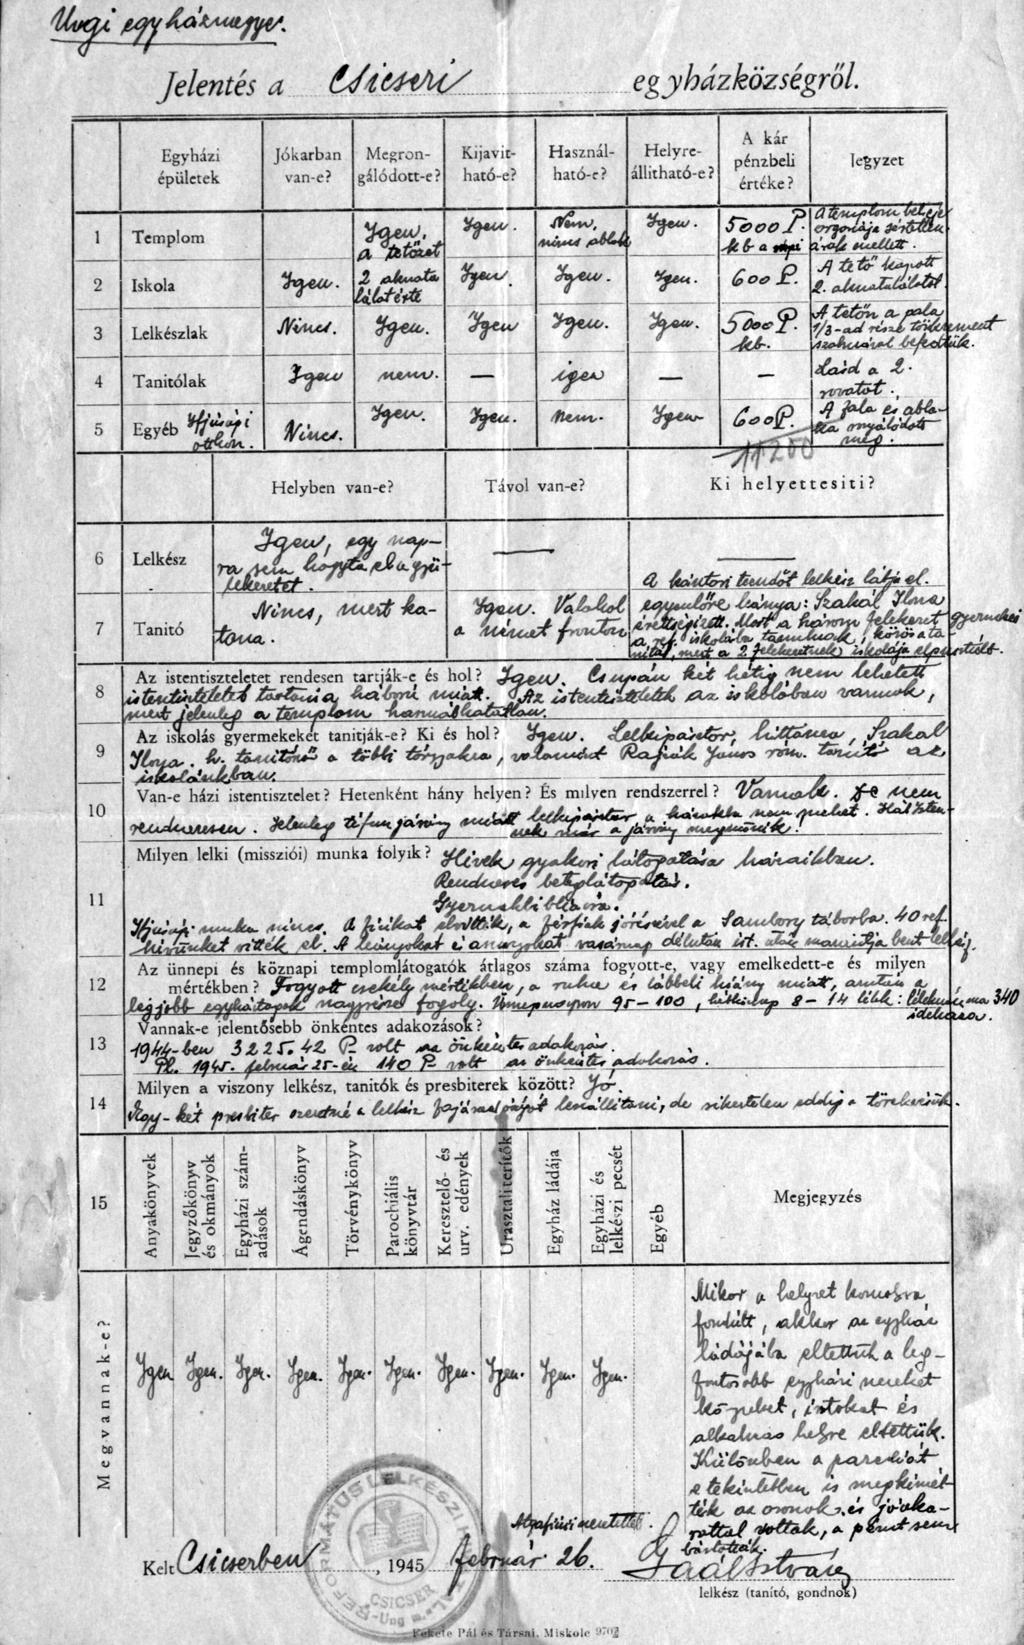 Ungi egyházmegye.
Jelentés a Csicseri egyházközségről.
Egyházi épületek
Jókarban van-e?
Megrongálódott-e?
Kijavitható-e?
Használható-e?
Helyreállitható-e?
A kár pénzbeli értéke?
Jegyzet
1 Templom Igen, a tetőzet Igen. Nem, nincs ablak Igen. 5000 P. kb a mai árak mellett. A templom belseje orgonája sértetlen
2 Iskola Igen. 2 aknata lálat érte Igen. Igen. Igen. 600 P. A tető kapott 2. aknatalálatot.
3 Lelkészlak Nincs. Igen. Igen Igen. Igen. 5000 P. kb. A tetőn a pala 1/3-ad része tönkrement szalmával befedtük.
4 Tanitólak Igen nem. — igen — — Lásd a 2. rovatot.
5 Egyéb Ifjúsági otthon. Nincs. Igen. Igen. Nem. Igen 600 P. A fala és ablaka meg
11200
Helyben van-e? Távol van-e? Ki helyettesiti?
6 Lelkész Igen, egy napra sem hagyta el a gyülekezetet. — —
7 Tanitó Nincs, mert katona. Igen. Valahol a német fronton A kántori teendőt lelkész látja el. egyenlőre leánya: Szakál Ilona érettségizett. Most a három felekezet gyermekei a ref. iskolába tanulnak, mert a 2 felekezetnek iskolája elpusztult.
8 Az istentiszteletet rendesen tartják-e és hol? Igen. Csupán két hétig nem lehetett
istentiszteletet tartani a háború miatt. Az istentiszteletek az iskolában vannak,
mert jelenleg a templom használhatatlan.
9 Az iskolás gyermekeket tanitják-e? Ki és hol? Igen. Lelkipásztor, hittanra, Szakál
Ilona h. tanítónő a többi tárgyakra, valamint János róm. tanító az
iskolánkban.
10 Van-e házi istentisztelet? Hetenként hány helyen? És milyen rendszerrel? Vannak. De nem
rendszeresen. Jelenleg tífusz járvány miatt lelkipásztor a házakba nem mehet. Hál Isten-
nek már a járvány megszűnik!
11 Milyen lelki (missziói) munka folyik? Hivek gyakori látogatása házaikban.
Rendszeres beteglátogatás.
Gyermekbibliaóra.
Ifjúsági munka nincs. A fiúkat elvitték, a férfiak jórészével a Sambory táborba. 40 ref.
hívünket vitték el. A leányokat és anyokat vasárnap délután ist. után bent lelkész.
12 Az ünnepi és köznapi templomlátogatók átlagos száma fogyott-e, vagy emelkedett-e és milyen
mértékben? Fogyott csekély mértékben, a ruha és lábbeli hiány miatt, azután a
legjobb egyháztagok nagyrésze fogoly. Ünnepnapon 95-100, hétköznap 8-14 lélek: lélekszám ma 340
idehaza.
13 Vannak-e jelentősebb önkéntes adakozások?
1944-ben 3225.42 P volt az önkéntes adakozás.
Pl. 1945. február 25-én 140 P volt az önkéntes adakozás.
14 Milyen a viszony lelkész, tanitók és presbiterek között? Jó.
Egy-két presbiter szeretné a lelkész leszállítani, de sikertelen eddig a törekvésük.
15 Anyakönyvek
Jegyzőkönyv és okmányok
Egyházi számadások
Ágendáskönyv
Törvénykönyv
Parochiális könyvtár
Keresztelő- és urv. edények
Urasztali terítők
Egyház ládája
Egyházi és lelkészi pecsét
Egyéb
Megjegyzés
Megvannak-e? Igen Igen. Igen. Igen. Igen. Igen. Igen. Igen. Igen. Igen.
Mikor a helyzet komolyra
fordult, akkor az egyház
ládájába eltettük a leg-
fontosabb egyházi
, iratokat és
alkalmas helyre eltettük.
Különben a parochiát
e tekintetben is megkímél-
ték az oroszok és jóaka-
rattal voltak, a pénzt sem
bántották.
REFORMÁTUS LELKÉSZI HIVATAL
CSICSER
Ung m.
Kelt Csicserben, 1945 február 26.
Gaál István
lelkész (tanító, gondnok)
Fekete Pál és Társai, Miskolc 9702